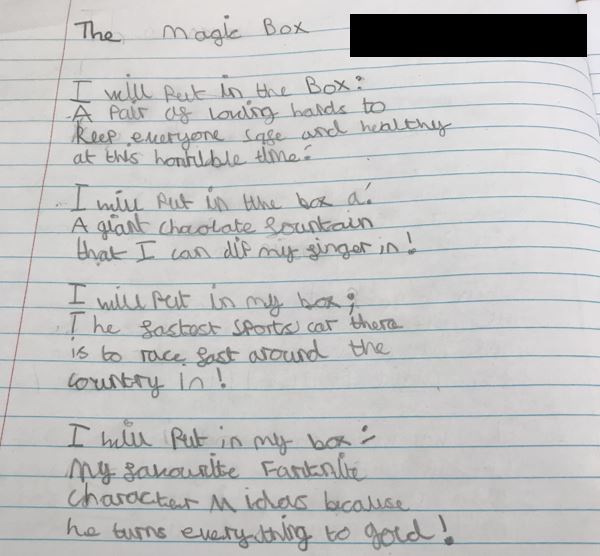 The Magic Box
I will put in the Box:
A Pair of loving hands to
Keep everyone safe and healthy
at this horrible time:
I will put in the box a:
A giant chocolate fountain
that I can dip my finger in!
I will put in my box;
The fastest sports car there
is to race fast around the
country in!
I will put in my box:-
My favourite Fortnite
character Midas because
he turns everything to gold!